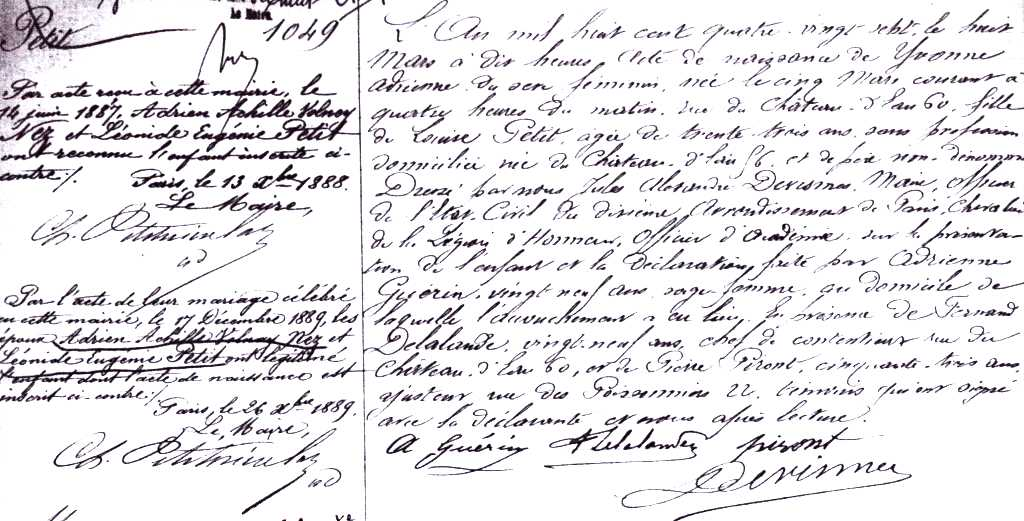 Le Maire
Petit
1049
Par acte reçu à cette mairie, le
14 juin 1887, Adrien Achille Volnay
Nez et Léonide Eugénie Petit
ont reconnu l'enfant inscrite ci-
contre./.
Paris, le 13 Xbre 1888.
Le Maire,
Par l'acte de leur mariage célébré
en cette mairie, le 17 Décembre 1889, les
époux Adrien Achille Volnay Nez et
Léonide Eugénie Petit ont légitimé
l'enfant dont l'acte de naissance est
inscrit ci-contre./.
Paris, le 26 Xbre 1889.
Le Maire,
L'An mil huit cent quatre-vingt sept, le huit
Mars à dix heures. Acte de naissance de Yvonne
Adrienne du sexe féminin, née le cinq Mars courant à
quatre heures du matin, rue du Château-d'Eau 60, fille
de Louise Petit, agée de trente trois ans, sans profession
domiciliée rue du Château-d'Eau 56, et de père non-dénommé
Dressé par nous Jules Alexandre Devismes, Maire, Officier
de l'Etat-Civil du dixième Arrondissement de Paris, Chevalier
de la Légion d'Honneur, Officier d'Académie, sur la présenta-
tion de l'enfant et la déclaration faite par Adrienne
Guérin, vingt neuf ans, sage femme, au domicile de
laquelle l'accouchement a eu lieu. En présence de Fernand
Delalande, vingt-neuf ans, chef de contentieux rue du
Château-d'Eau 60, et de Pierre Piront, cinquante-trois ans,
ajusteur rue des Poissonniers 22, témoins qui ont signé
avec la déclarante et nous après lecture.
A Guérin Delalande piront
Devismes